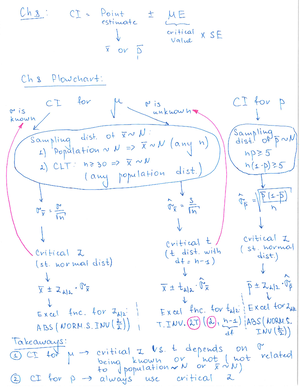 Ch 8: CI = Point estimate ± ME
critical value × SE
x̄ or p̄
Ch 8 Flowchart:
CI for μ
σ is known
σ is unknown
CI for p
Sampling dist of x̄ ~ N:
1) Population ~ N ⇒ x̄ ~ N (any n)
2) CLT: n ≥ 30 ⇒ x̄ ~ N
(any population dist)
Sampling dist of p̄ ~ N
np ≥ 5
n(1-p) ≥ 5
σx̄ = σ/√n
σ̂x̄ = s/√n
σ̂p̄ = √(p̄(1-p̄)/n)
Critical Z
(st. normal dist)
Critical t
(t dist. with
df = n-1)
Critical Z
(st. normal dist)
x̄ ± Zα/2 · σx̄
x̄ ± tα/2 · σ̂x̄
p̄ ± Zα/2 · σ̂p̄
Excel fnc. for Zα/2
ABS(NORM.S.INV(α/2))
Excel fnc. for tα/2
T.INV.2T(α, n-1)
df
Excel for Zα/2
ABS(NORM.S.INV(α/2))
Takeaways:
① CI for μ → critical Z vs t depends on σ
being known or not (not related
to population ~ N or x̄ ~ N)
② CI for p → always use critical Z